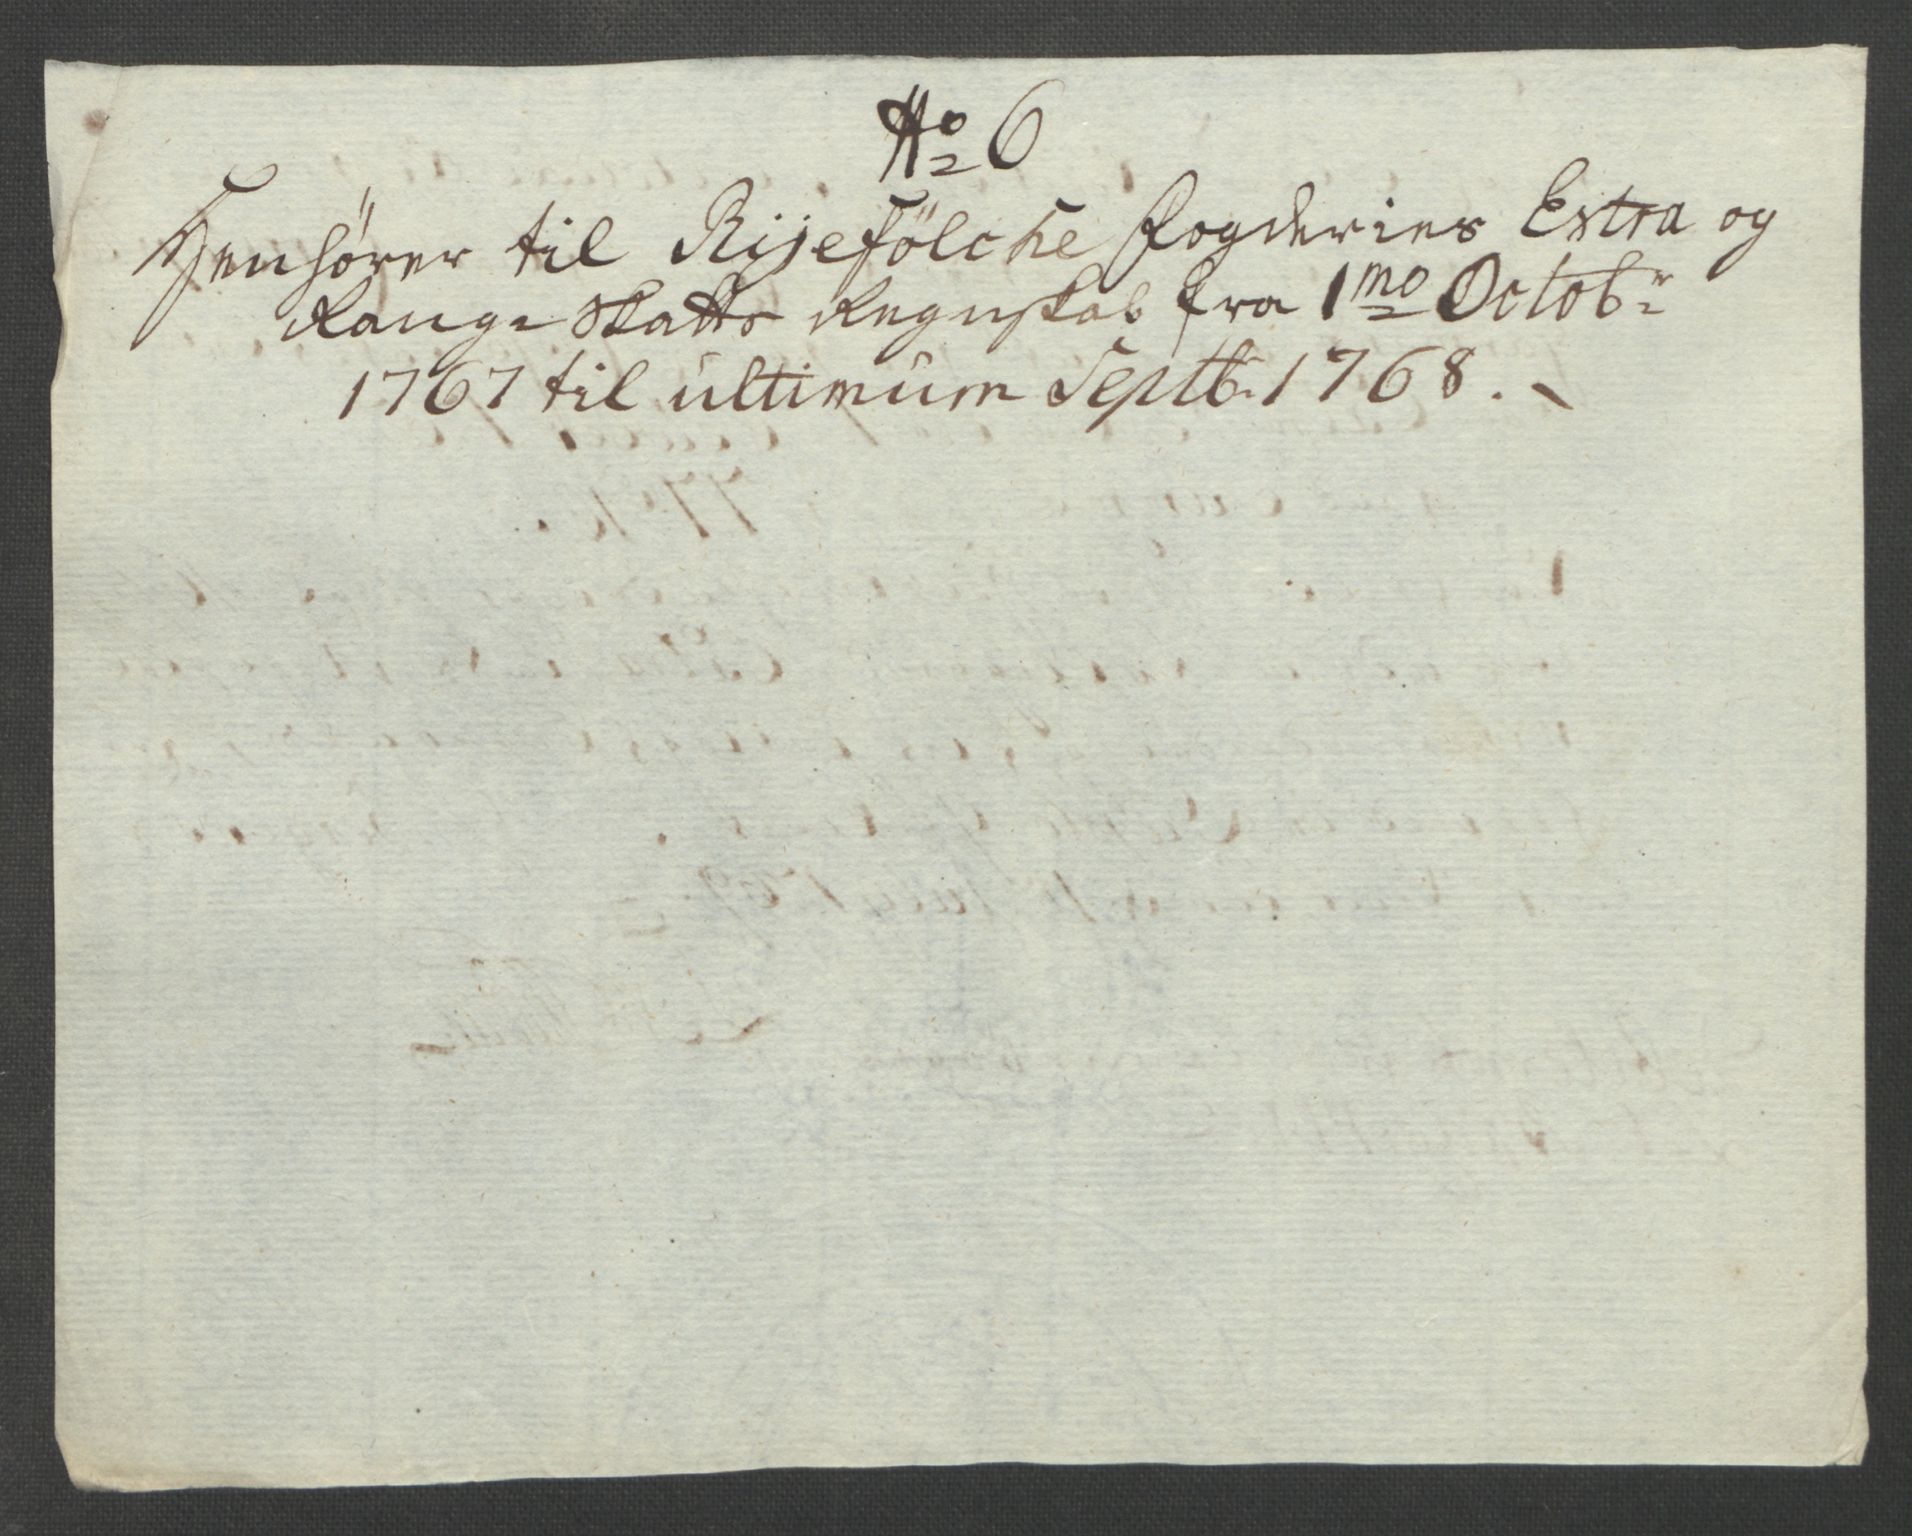 No 6
Henhörer til Rijefölche Fogderies Extra og
Rang-Skatts Regnskab fra 1mo Octobr
1767 til ultimum Septb. 1768.